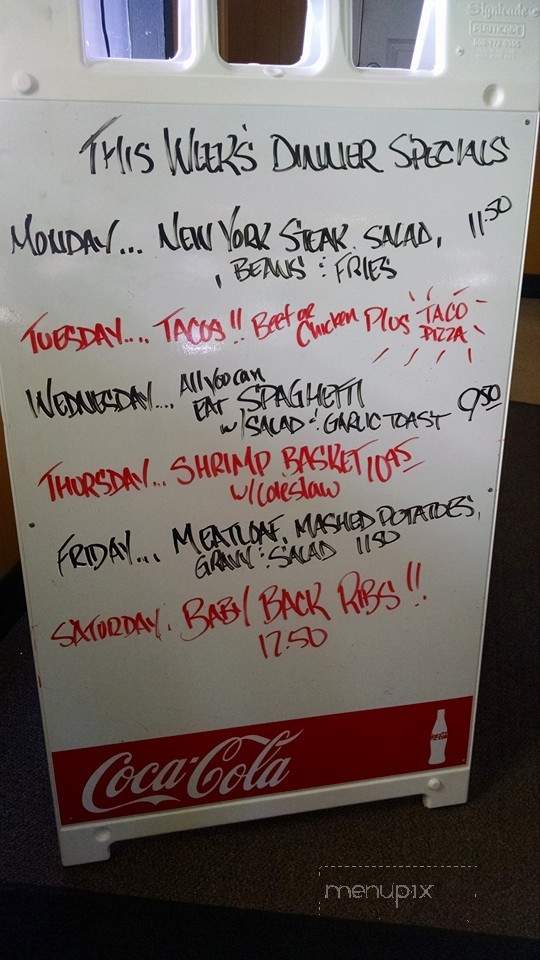 Signicade
PLASTICADE
THIS WEEK'S DINNER SPECIALS
MONDAY... NEW YORK STEAK. SALAD, 11.50
, BEANS : FRIES
TUESDAY.... TACOS!! Beef or Chicken Plus TACO PIZZA
WEDNESDAY... All you can EAT SPAGHETTI 9.50
w/ SALAD : GARLIC TOAST
THURSDAY... SHRIMP BASKET 10.95
w/ Coleslaw
FRIDAY... MEATLOAF, MASHED POTATOES,
GRAVY : SALAD 11.50
SATURDAY. BABY BACK RIBS!!
12.50
Coca-Cola
menupix